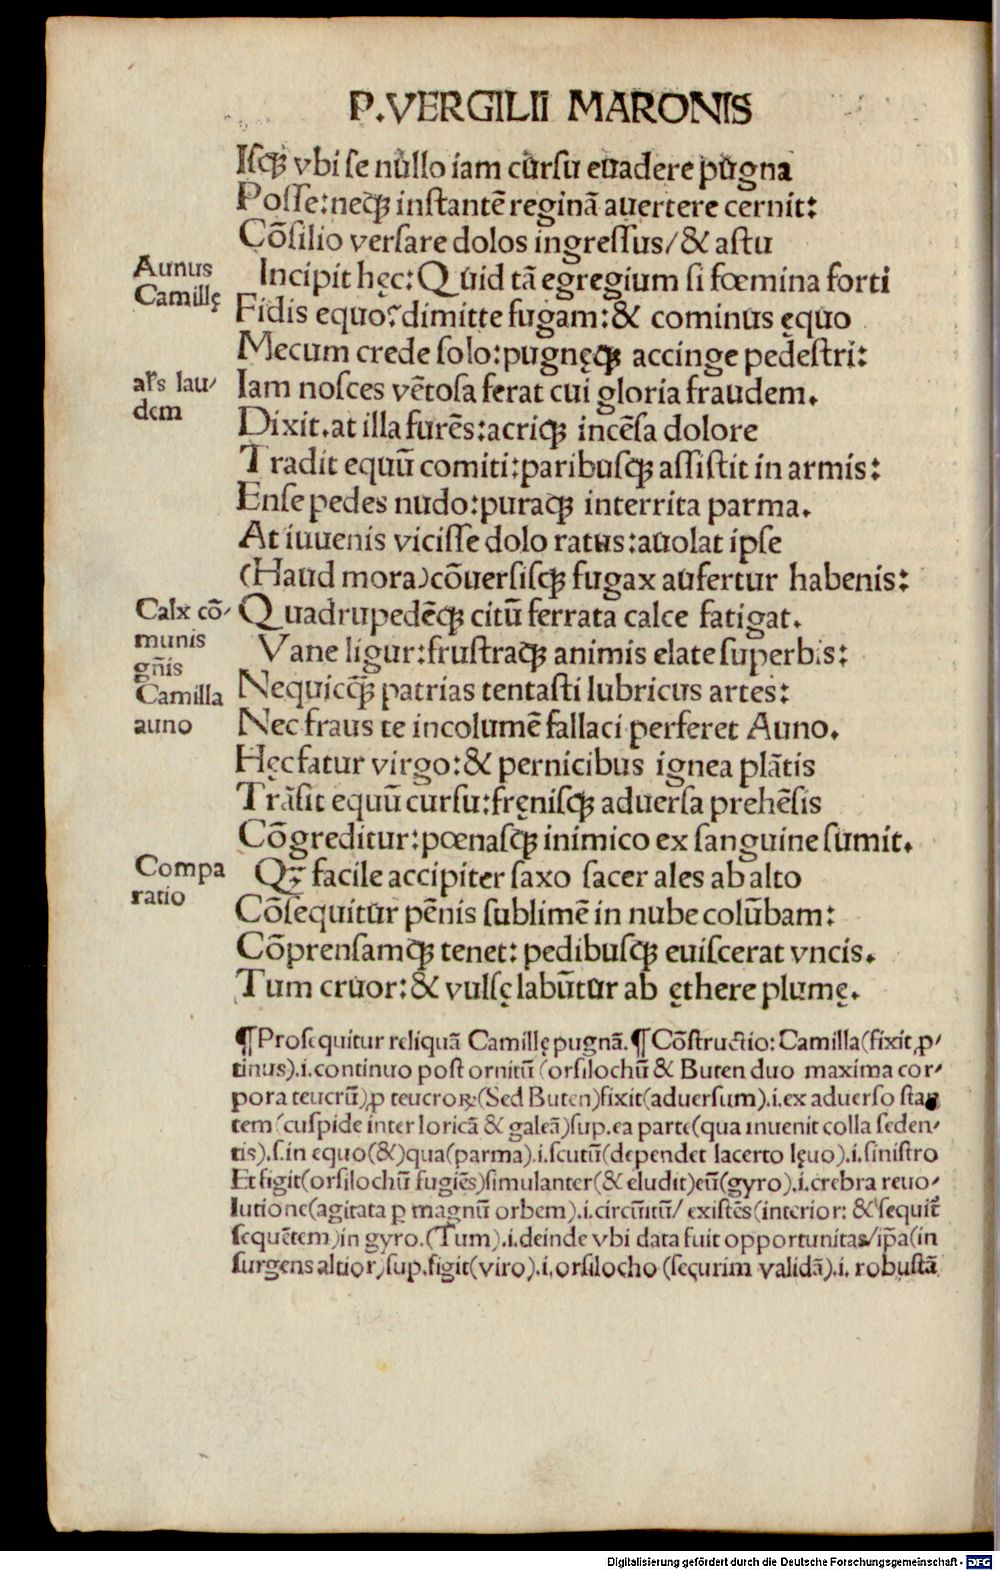 P.VERGILII MARONIS
Isq̃ vbi se nullo iam cursu euadere pugna
Posse:neq̃ instantē reginā auertere cernit:
Cōsilio versare dolos ingressus/& astu
Aunus
Camillę
Incipit hęc:Quid tā egregium si fœmina forti
Fidis equo?dimitte fugam:& cominus ęquo
Mecum crede solo:pugnęq̃ accinge pedestri:
als lau/
dem
Iam nosces vētosa ferat cui gloria fraudem.
Dixit.at illa furēs:acriq̃ incēsa dolore
Tradit equū comiti:paribusq̃ assistit in armis:
Ense pedes nudo:puraq̃ interrita parma.
At iuuenis vicisse dolo ratus:auolat ipse
(Haud mora)cōuersisq̃ fugax aufertur habenis:
Calx cō/
munis
gñis
Quadrupedēq̃ citū ferrata calce fatigat.
Vane ligur:frustraq̃ animis elate superbis:
Camilla
auno
Nequicq̃ patrias tentasti lubricus artes:
Nec fraus te incolumē fallaci perferet Auno.
Hęc fatur virgo:& pernicibus ignea plātis
Trāsit equū cursu:fręnisq̃ aduersa prehēsis
Cōgreditur:pœnasq̃ inimico ex sanguine sumit.
Compa
ratio
Qꝫ facile accipiter saxo sacer ales ab alto
Cōsequitur pēnis sublimē in nube colūbam:
Cōprensamq̃ tenet: pedibusq̃ euiscerat vncis.
Tum cruor:& vulsę labūtur ab ęthere plumę.
¶Prosequitur reliquā Camillę pugnā.¶Cōstructio:Camilla(fixit,ꝓ/
tinus).i.continuo post ornitū (orsilochū & Buten duo maxima cor/
pora teucrū),ꝓ teucroꝝ(Sed Buten)fixit(aduersum).i.ex aduerso stan
tem (cuspide inter loricā & galeā)sup.ea parte(qua inuenit colla seden/
tis).s.in equo(&)qua(parma).i.scutū(dependet lacerto lęuo).i.sinistro
Et figit(orsilochū fugiēs)simulanter(& eludit)eū(gyro).i.crebra reuo/
lutione(agitata ꝑ magnū orbem).i.circūitū/ existēs(interior: & sequit᷑
sequētem)in gyro.(Tum).i.deinde vbi data fuit opportunitas/ip̄a(in
surgens altior)sup.figit(viro).i.orsilocho (securim validā).i. robustā
Digitalisierung gefördert durch die Deutsche Forschungsgemeinschaft - DFG